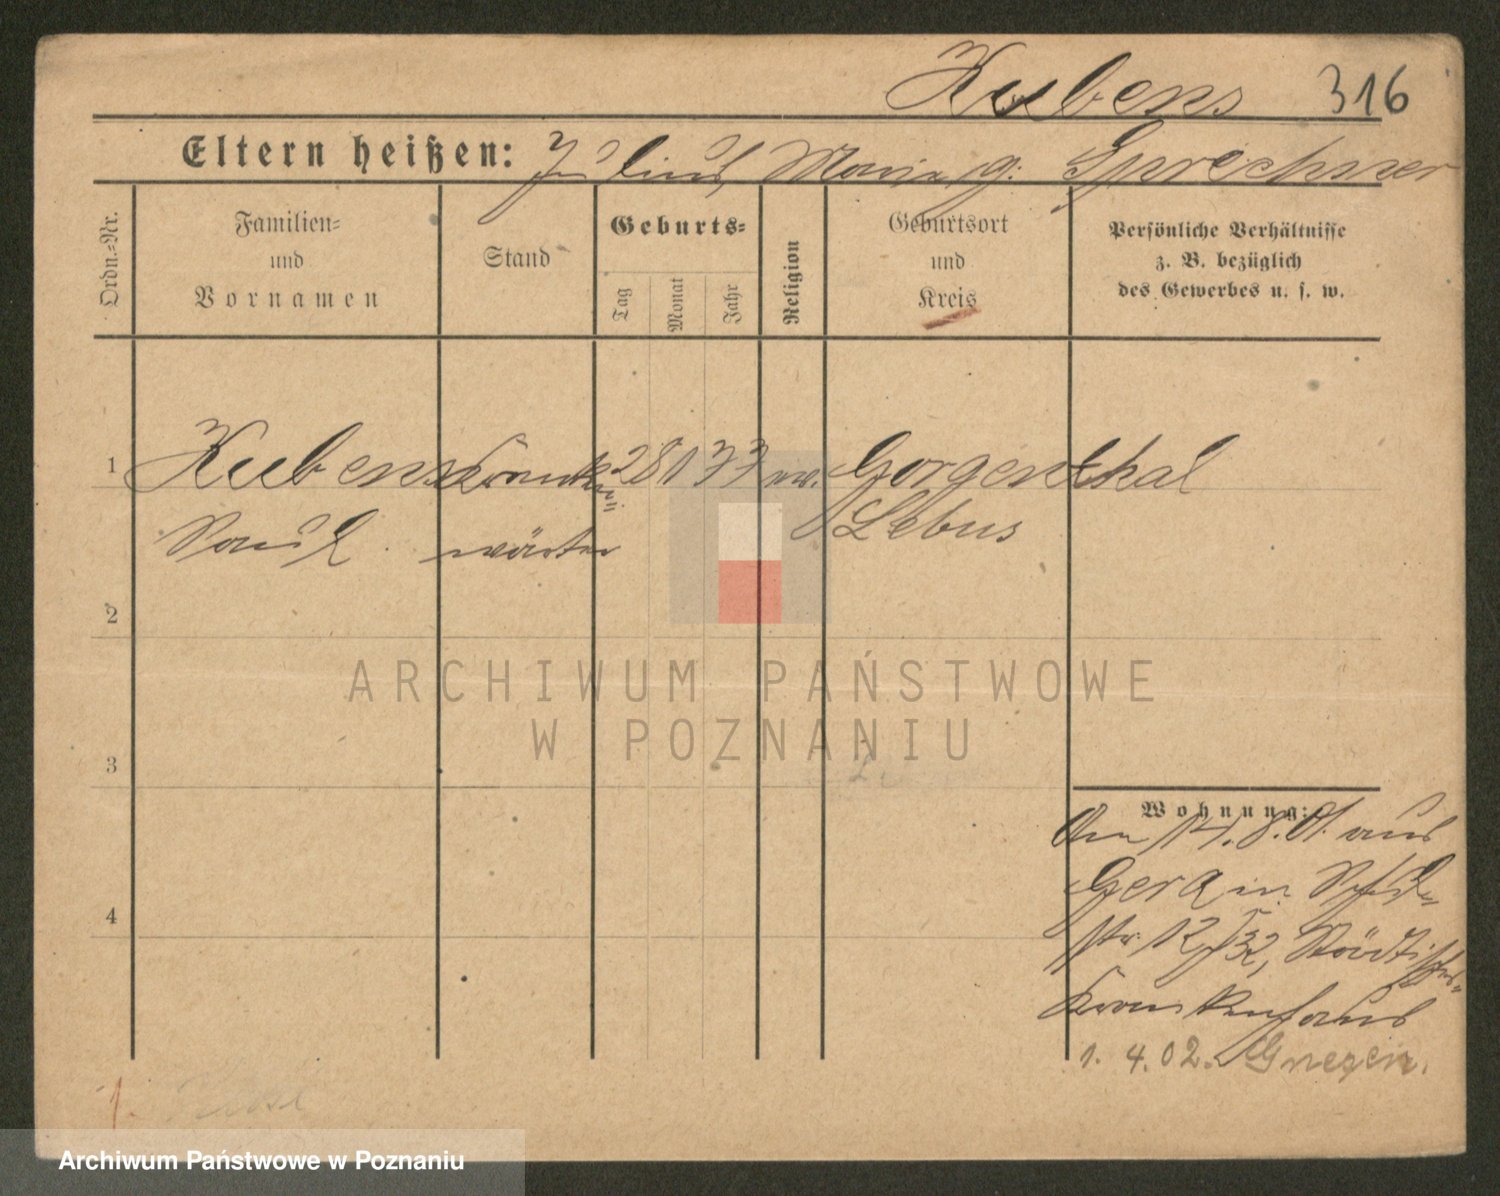 Kubens 316
Eltern heißen: Julius, Maria g. Sprechner
Ordn.-Nr.
Familien-
und
Vornamen
Stand
Geburts-
Tag
Monat
Jahr
Religion
Geburtsort
und
Kreis
Persönliche Verhältnisse
z. B. bezüglich
des Gewerbes u. s. w.
1 Kubens Kranken- 28 1 77 ev. Gorgenthal
Paul wärter Lebus
2
3
4
Wohnung:
Am 14.8.01. aus
Gera in
str. 12/32, Städtisches-
Krankenhaus
1. 4. 02. Gnezen.
1.
ARCHIWUM PAŃSTWOWE
W POZNANIU
Archiwum Państwowe w Poznaniu